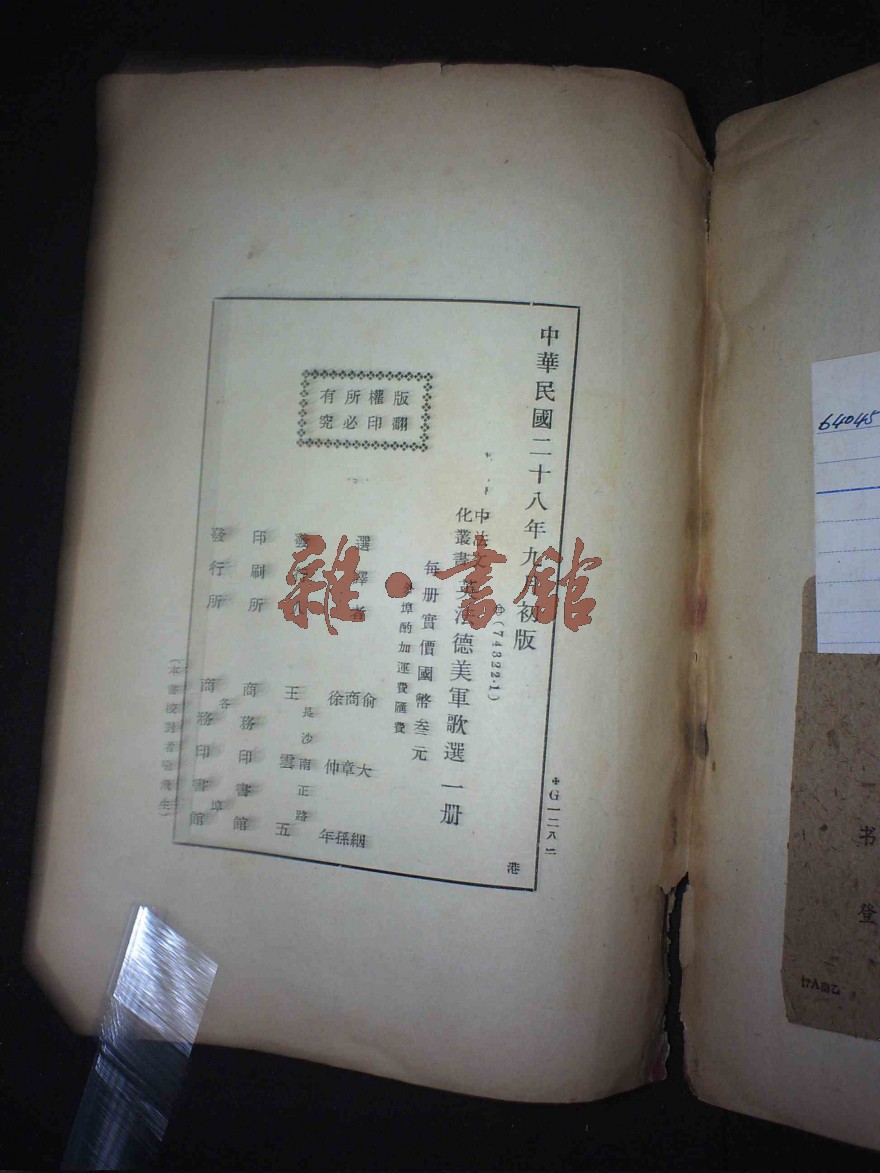 中華民國二十八年九月初版
(74322·1)
中法文化叢書
英法德美軍歌選 一册
每册實價國幣叁元
埠酌加運費匯費
版權所有
翻印必究
選譯者
俞大絪
商章孫
徐仲年
長沙南正路
王雲五
印刷所
商務印書館
發行所
各埠
商務印書館
G一二八二
港
雜·書館
64045
书登